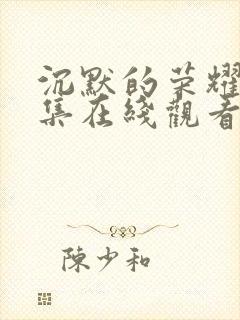 沉默的荣耀
集在綫觀看
陳少和